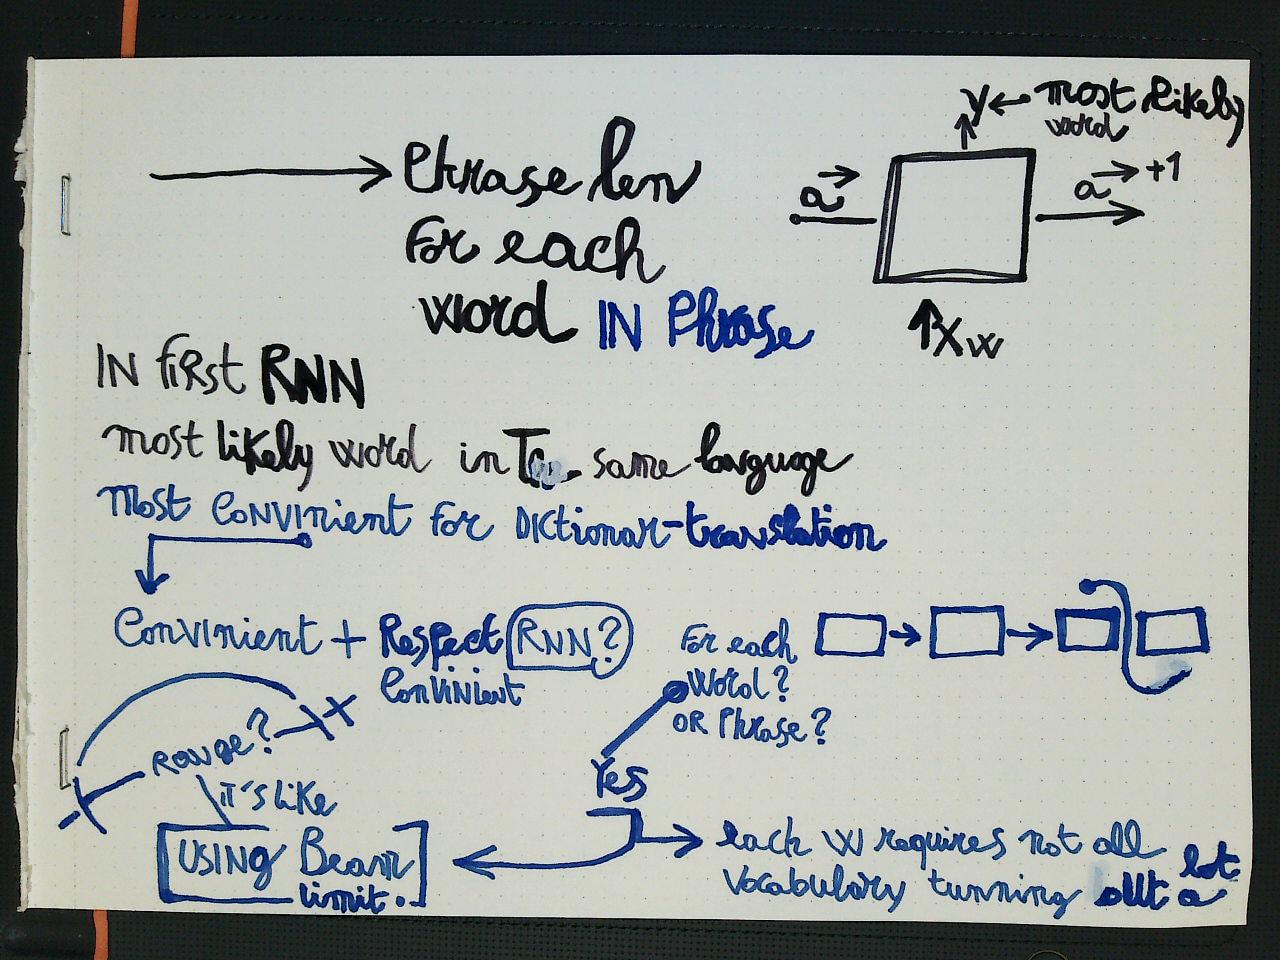 Phrase len
For each
word IN Phrase
y ← most likely
word
a
a +1
Xw
IN first RNN
most likely word in same language
most convinient for Dictionar-translation
Convinient + Respect RNN?
Convinient
For each
Word?
OR Phrase?
Range?
it's like
USING Beam
limit.
Yes
each W requires not all
vocabulary tunning but a lot